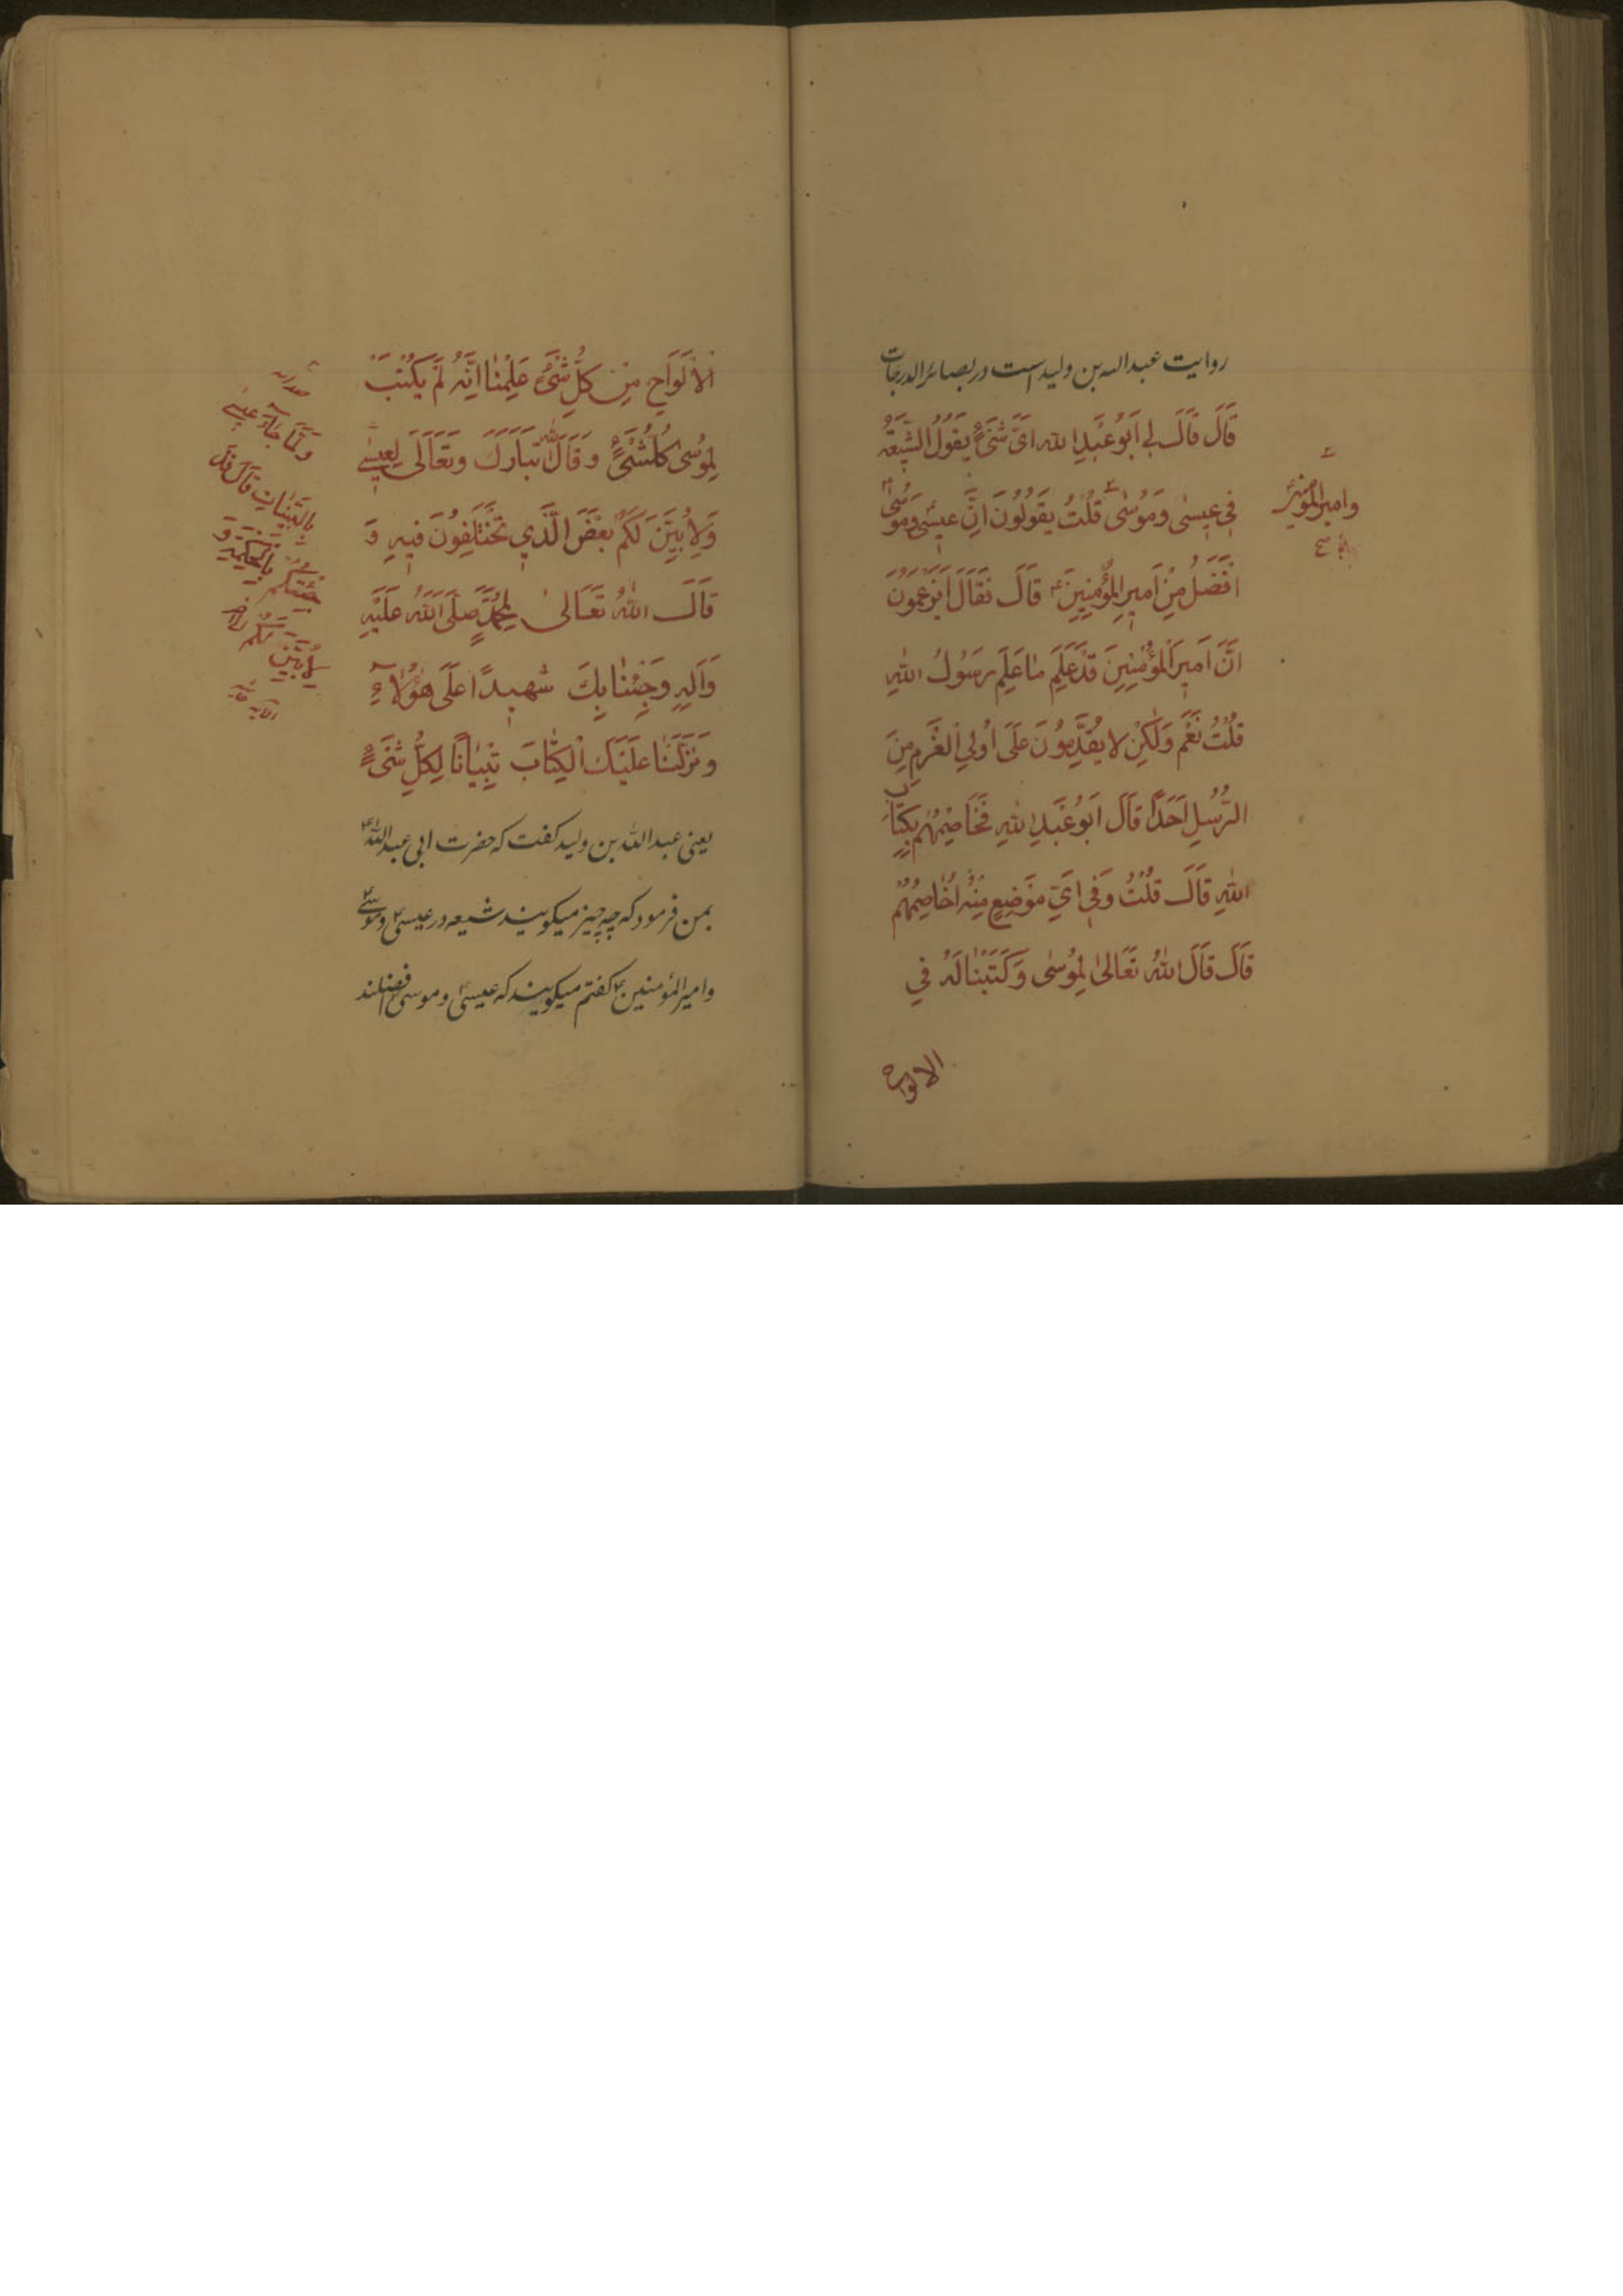 روایت عبدالله بن ولید است در بصائر الدرجات
قَالَ قَالَ لِی اَبُو عَبْدِ اللهِ اَیَّ شَیْءٍ یَقُولُ الشِّیعَةُ
فِی عِیسٰی وَمُوسٰی قُلْتُ یَقُولُونَ اِنَّ عِیسٰی وَمُوسٰی
وامیر المؤمنین
اَفْضَلُ مِنْ اَمِیرِ الْمُؤْمِنِینَ قَالَ فَقَالَ اَیَزْعَمُونَ
اَنَّ اَمِیرَ الْمُؤْمِنِینَ قَدْ عَلِمَ مَا عَلِمَ رَسُولُ اللهِ
قُلْتُ نَعَمْ وَلٰکِنْ لَا یُقَدِّمُونَ عَلَی اُولِی الْعَزْمِ مِنَ
الرُّسُلِ اَحَدًا قَالَ اَبُو عَبْدِ اللهِ فَخَاصِمْهُمْ بِکِتَابِ
اللهِ قَالَ قُلْتُ وَفِی اَیِّ مَوْضِعٍ مِنْهُ اُخَاصِمُهُمْ
قَالَ قَالَ اللهُ تَعَالٰی لِمُوسٰی وَکَتَبْنَا لَهُ فِی
الالواح
الْاَلْوَاحِ مِنْ کُلِّ شَیْءٍ عَلِمْنَا اَنَّهُ لَمْ یَکْتُبْ
لِمُوسٰی کُلَّ شَیْءٍ وَقَالَ اللهُ تَبَارَکَ وَتَعَالَی لِعِیسٰی
وَلِاُبَیِّنَ لَکُمْ بَعْضَ الَّذِی تَخْتَلِفُونَ فِیهِ وَ
قَالَ اللهُ تَعَالٰی لِمُحَمَّدٍ صَلَّی اللهُ عَلَیْهِ
وَآلِهِ وَجِئْنَا بِکَ شَهِیدًا عَلَی هٰؤُلَاءِ
وَنَزَّلْنَا عَلَیْکَ الْکِتَابَ تِبْیَانًا لِکُلِّ شَیْءٍ
یعنی عبدالله بن ولید کفت که حضرت ابی عبدالله
بمن فرمود که چه چیز میکویند شیعه در عیسی و موسی
وامیر المؤمنین کفتم میکویند که عیسی و موسی افضلند
وَلَمَّا جَاءَ عِیسٰی
بِالْبَیِّنَاتِ قَالَ قَدْ
جِئْتُکُمْ بِالْحِکْمَةِ وَ
لِاُبَیِّنَ لَکُمْ